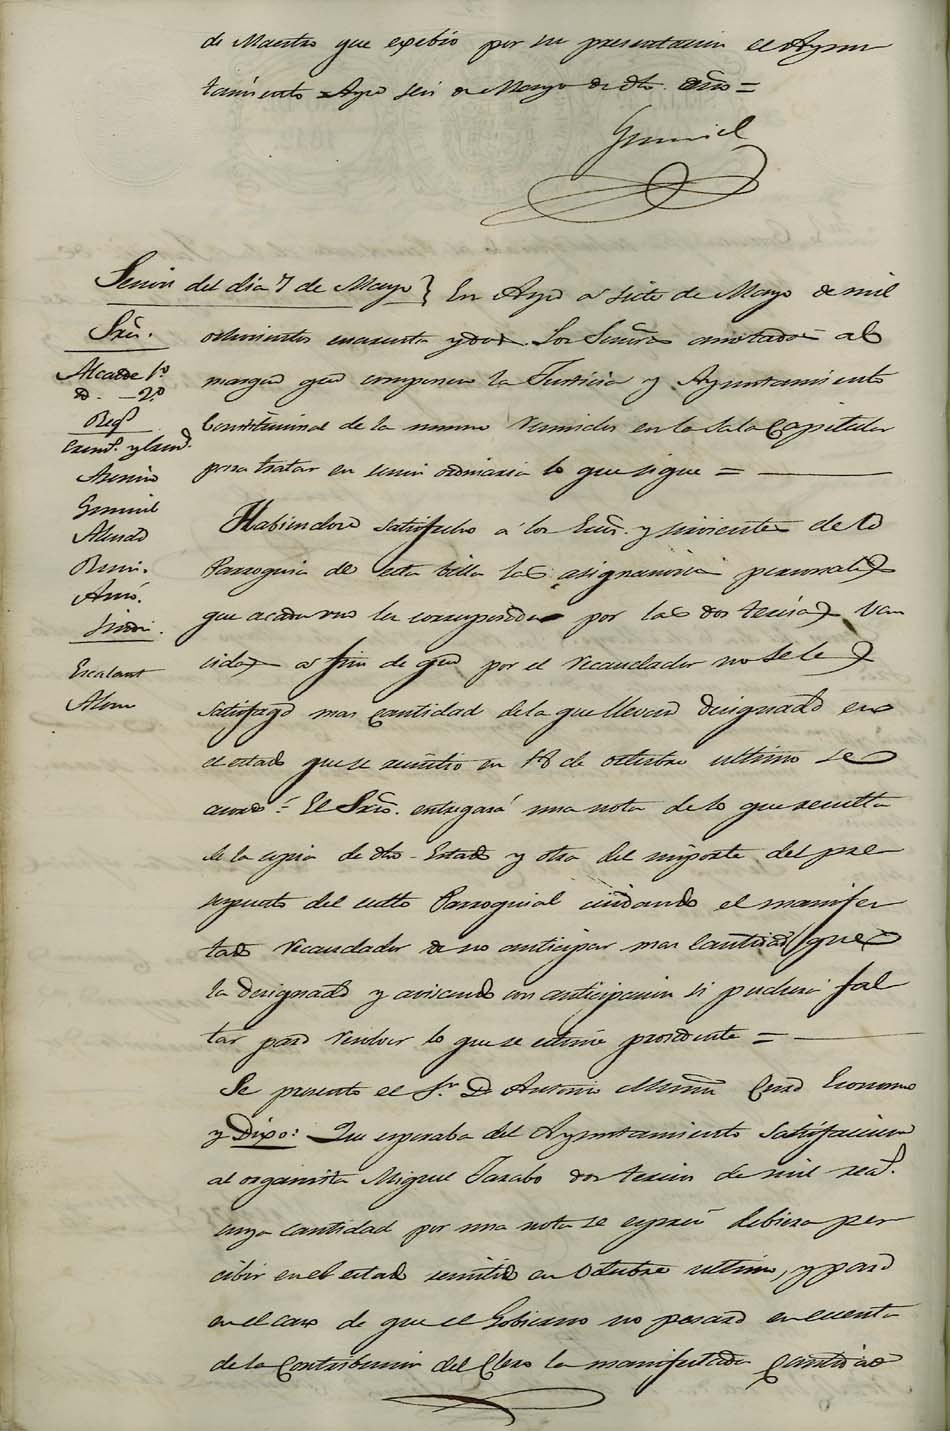 de Maestro que exebio por su presentacion el Ayun
tamiento Aya seis de Mayo de dho. año =
Gumiel
Sesion del dia 7 de Mayo} En Aya a siete de Mayo de mil
ochocientos cuarenta y dos. Los Señores anotados al
margen que componen la Justicia y Ayuntamiento
Constitucional de la misma reunidos en la Sala Capitular
para tratar en sesion ordinaria lo que sigue =
Sres.
Alcalde 1º.
Yd. - 2º.
Regs.
Asensio
Gumiel
Alvado
Sindi.
Escalant
Habiendose satisfecho á los Ecos. y sirvientes de la
Parroquia de esta Villa las asignaciones personales
que a cada uno les corresponden por las dos tercias ven
cidas a fin de que por el recaudador no se les
satisfaga mas cantidad de la que llevan designada en
el estado que se remitio en 18 de octubre ultimo se
acordó: El Srio. entregará una nota de lo que resulta
de la copia de dho. Estado y otra del importe del pre
supuesto del culto Parroquial cuidando el manifes
tado recaudador de no anticipar mas cantidad que
la designada y avisando con anticipacion si pudiera fal
tar para resolver lo que se estime procedente =
Se presento el Sr. D. Antonio Cura Economo
y Dixo: Que esperaba del Ayuntamiento satisfaciera
al organista Miguel Jarabo dos tercios de mil reas.
cuya cantidad por una nota se espresó debiera per
cibir en el estado remitido en Octubre ultimo, y para
en el caso de que el Gobierno no pasara en cuenta
de la Contribucion del Clero la manifestada cantidad